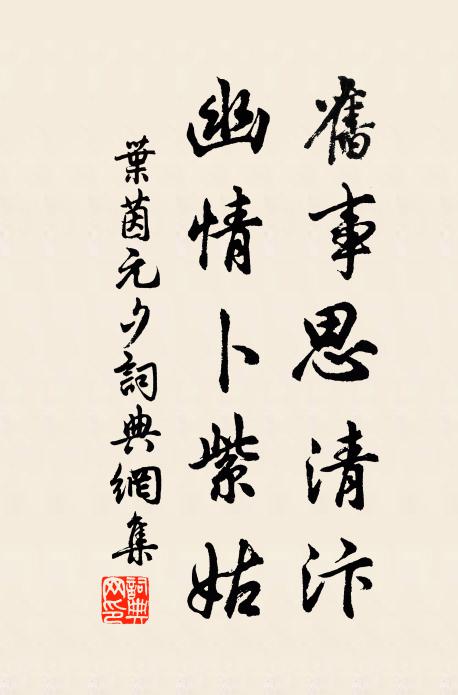 舊事思清汴
幽情卜紫姑
葉茵元夕詞典網集
詞典網印